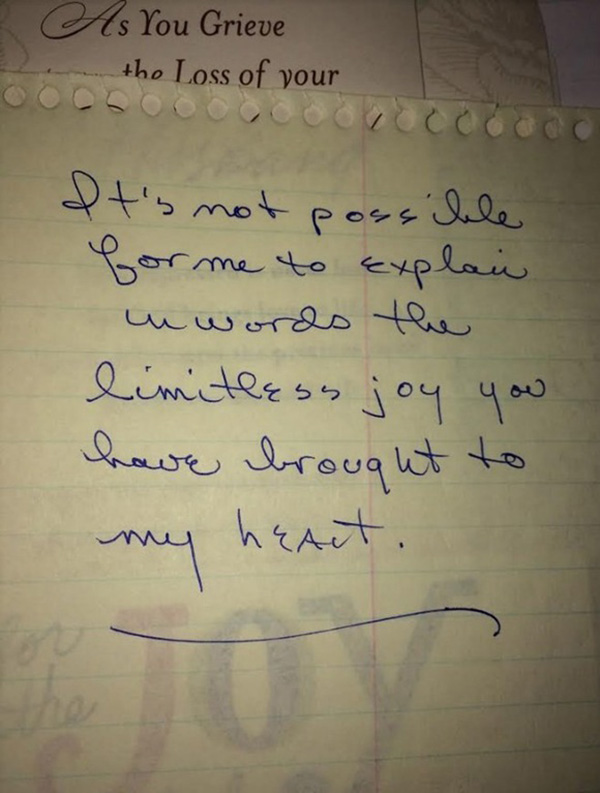 As You Grieve
the Loss of your
It's not possible
for me to explain
in words the
limitless joy you
have brought to
my heart.
for
the
JOY